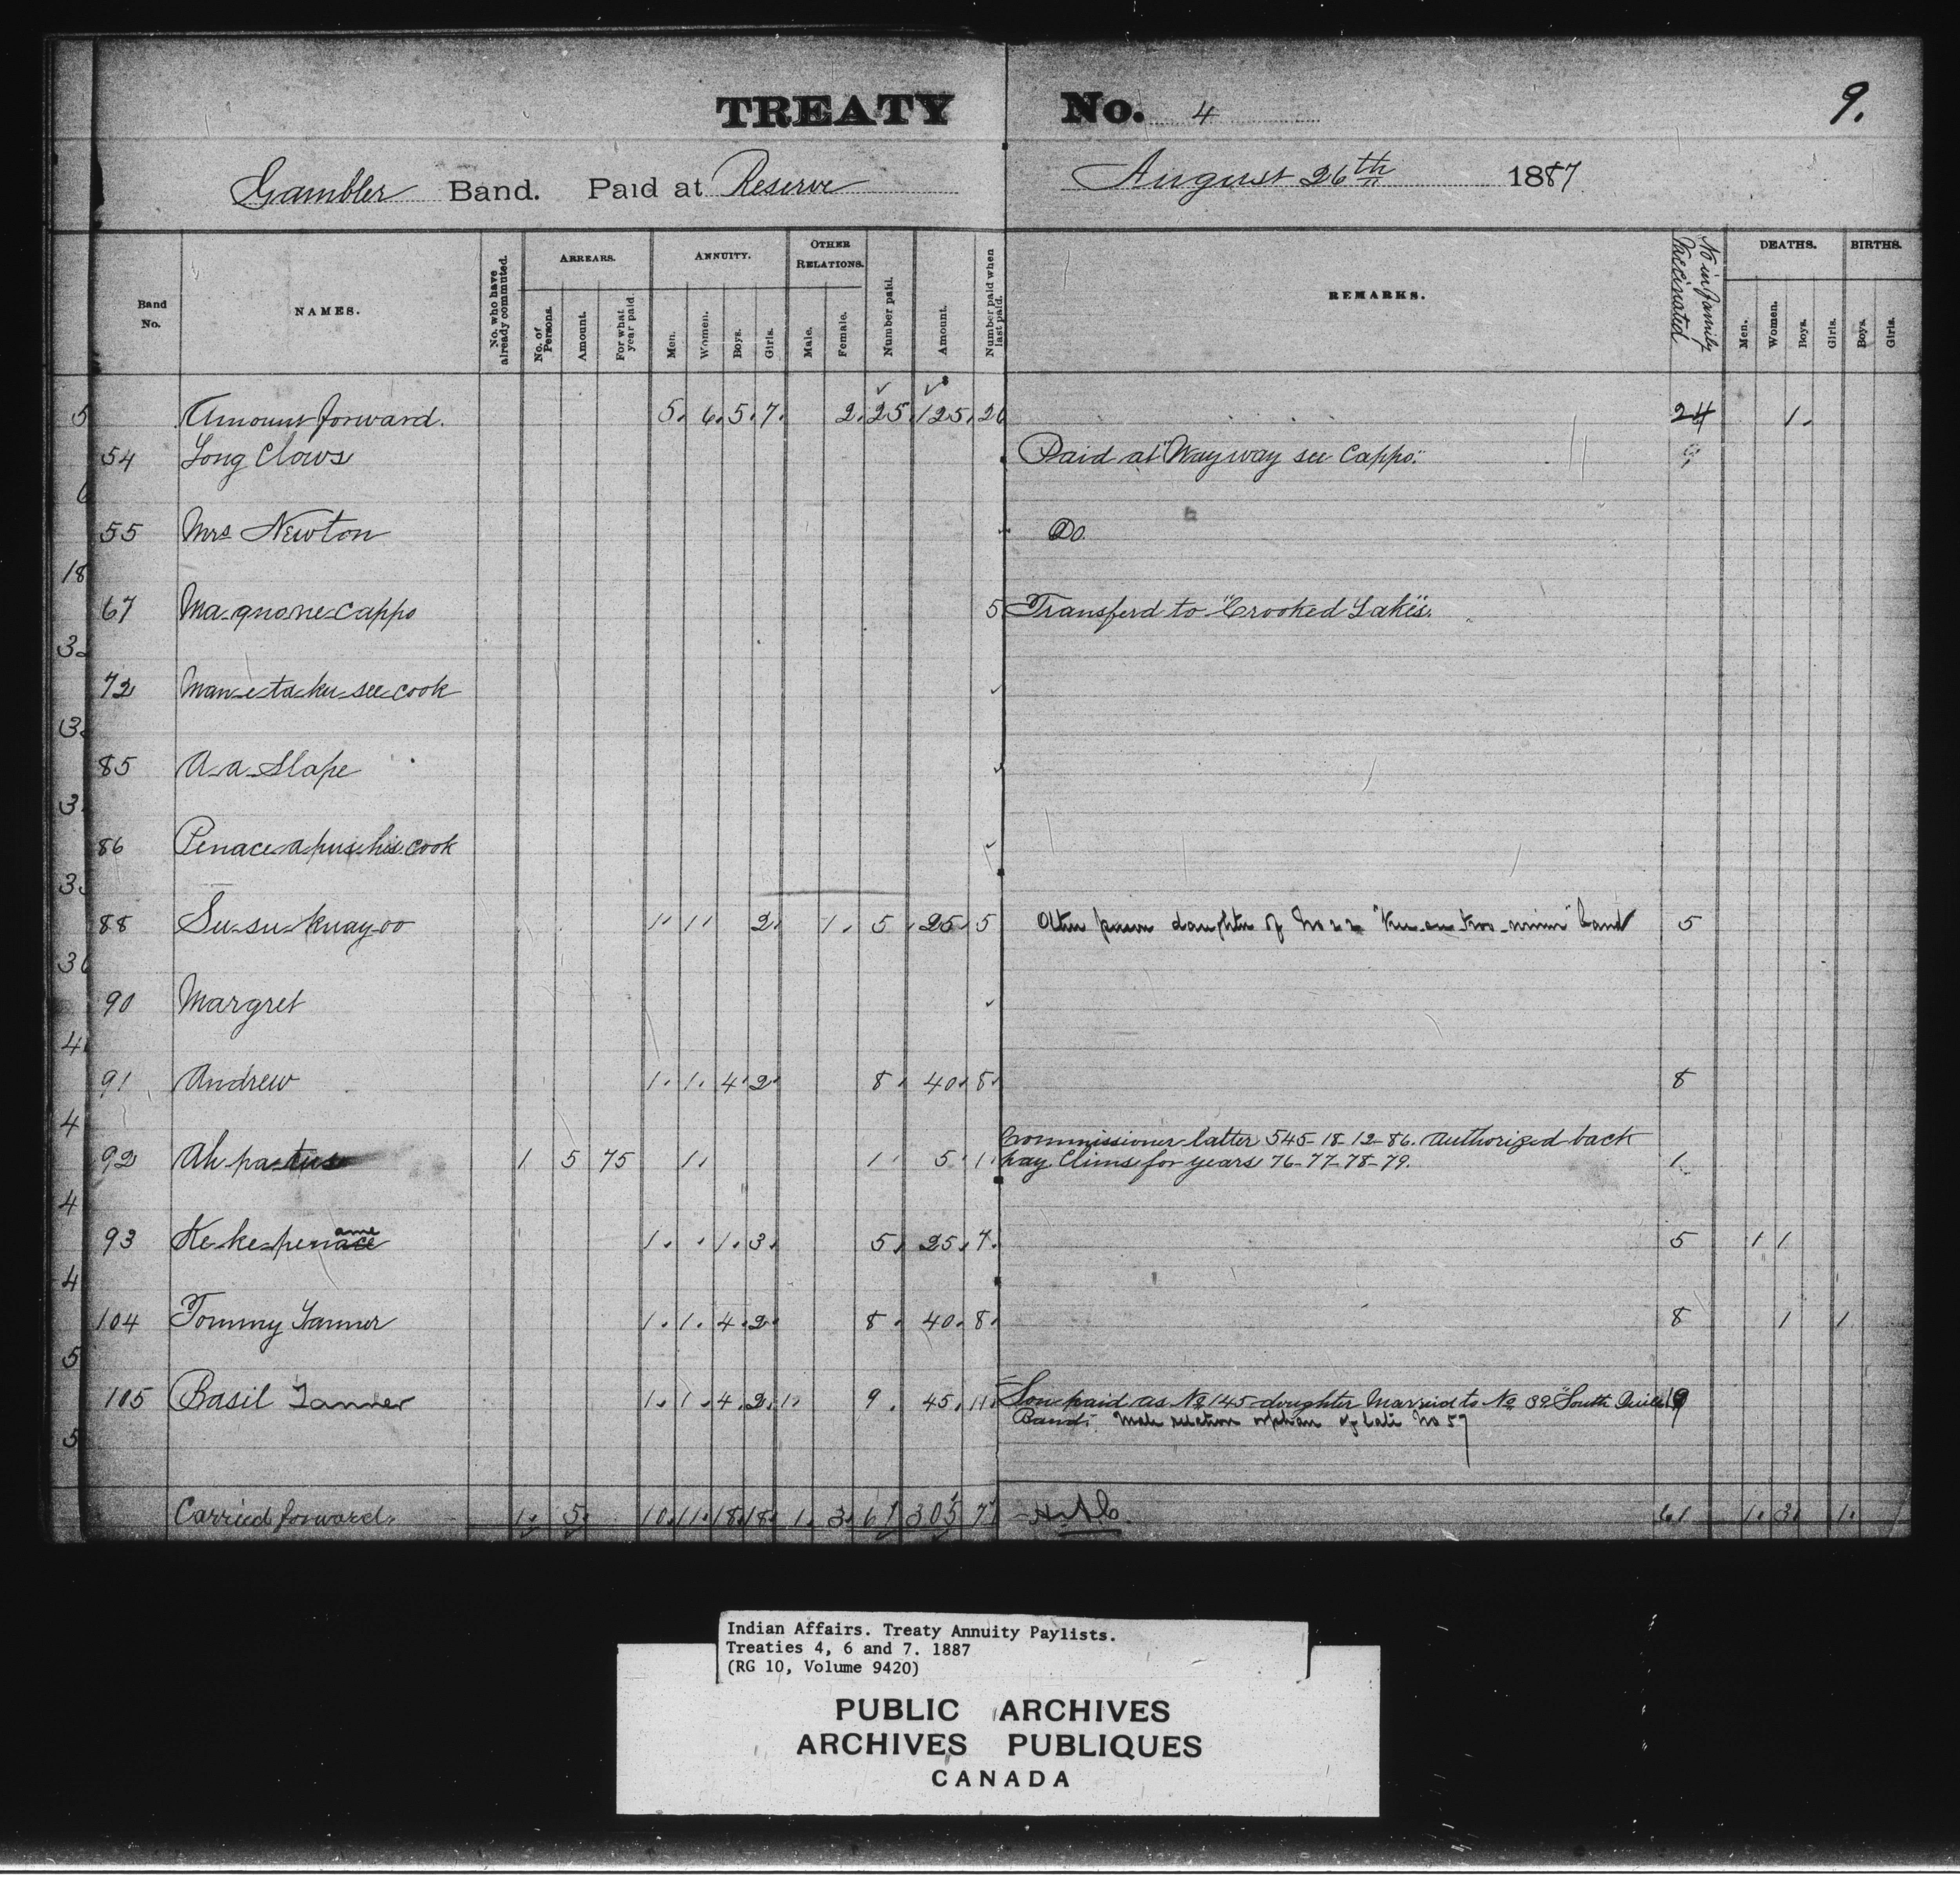 TREATY No. 4
9.
Gambler Band. Paid at Reserve August 26th 1887
Band No. NAMES. No. who have already commuted. ARREARS. No. of Persons. Amount. For what year paid. ANNUITY. Men. Women. Boys. Girls. OTHER RELATIONS. Male. Female. Number paid. Amount. Number paid when last paid. REMARKS. No in family Vaccinated DEATHS. Men. Women. Boys. Girls. BIRTHS. Boys. Girls.
Amount forward. 5. 6. 5. 7. 2. 25. 125. 26 24 1.
54 Long Claws Paid at "Wayway see Cappo."
55 Mrs Newton Do.
67 Ma-qno-ne-cappo 5 Transferd to "Crooked Lakes".
72 Man-e-ta-ku-see-cook
85 A-a-Slape
86 Penace-a-pus-his-cook
88 Su-su-kuay-oo 1 1 2 1. 5 25 5 Other person daughter of No 22 band 5
90 Margret
91 Andrew 1. 1. 4. 2. 8. 40. 8. 8
92 Ah-pa-tus 1 5 75 1. 1 5. 1. Commissioner latter 545-18-12-86. Authorized back
pay Clims for years 76-77-78-79. 1
93 Ke-ke-penace ame 1. 1. 3. 5. 25. 7. 5 1 1
104 Tommy Tanner 1. 1. 4. 2. 8. 40. 8. 8 1 1
105 Basil Tanner 1. 1. 4. 2. 1. 9. 45. 11. Son paid as No 145 daughter Married to No 39 "South Quill
Band". Male relation orphan of late No 57 9
Carried forward. 1. 5. 10. 11. 18. 18. 1. 3. 61 305 71 61 1. 3. 1.
Indian Affairs. Treaty Annuity Paylists.
Treaties 4, 6 and 7. 1887
(RG 10, Volume 9420)
PUBLIC ARCHIVES
ARCHIVES PUBLIQUES
CANADA